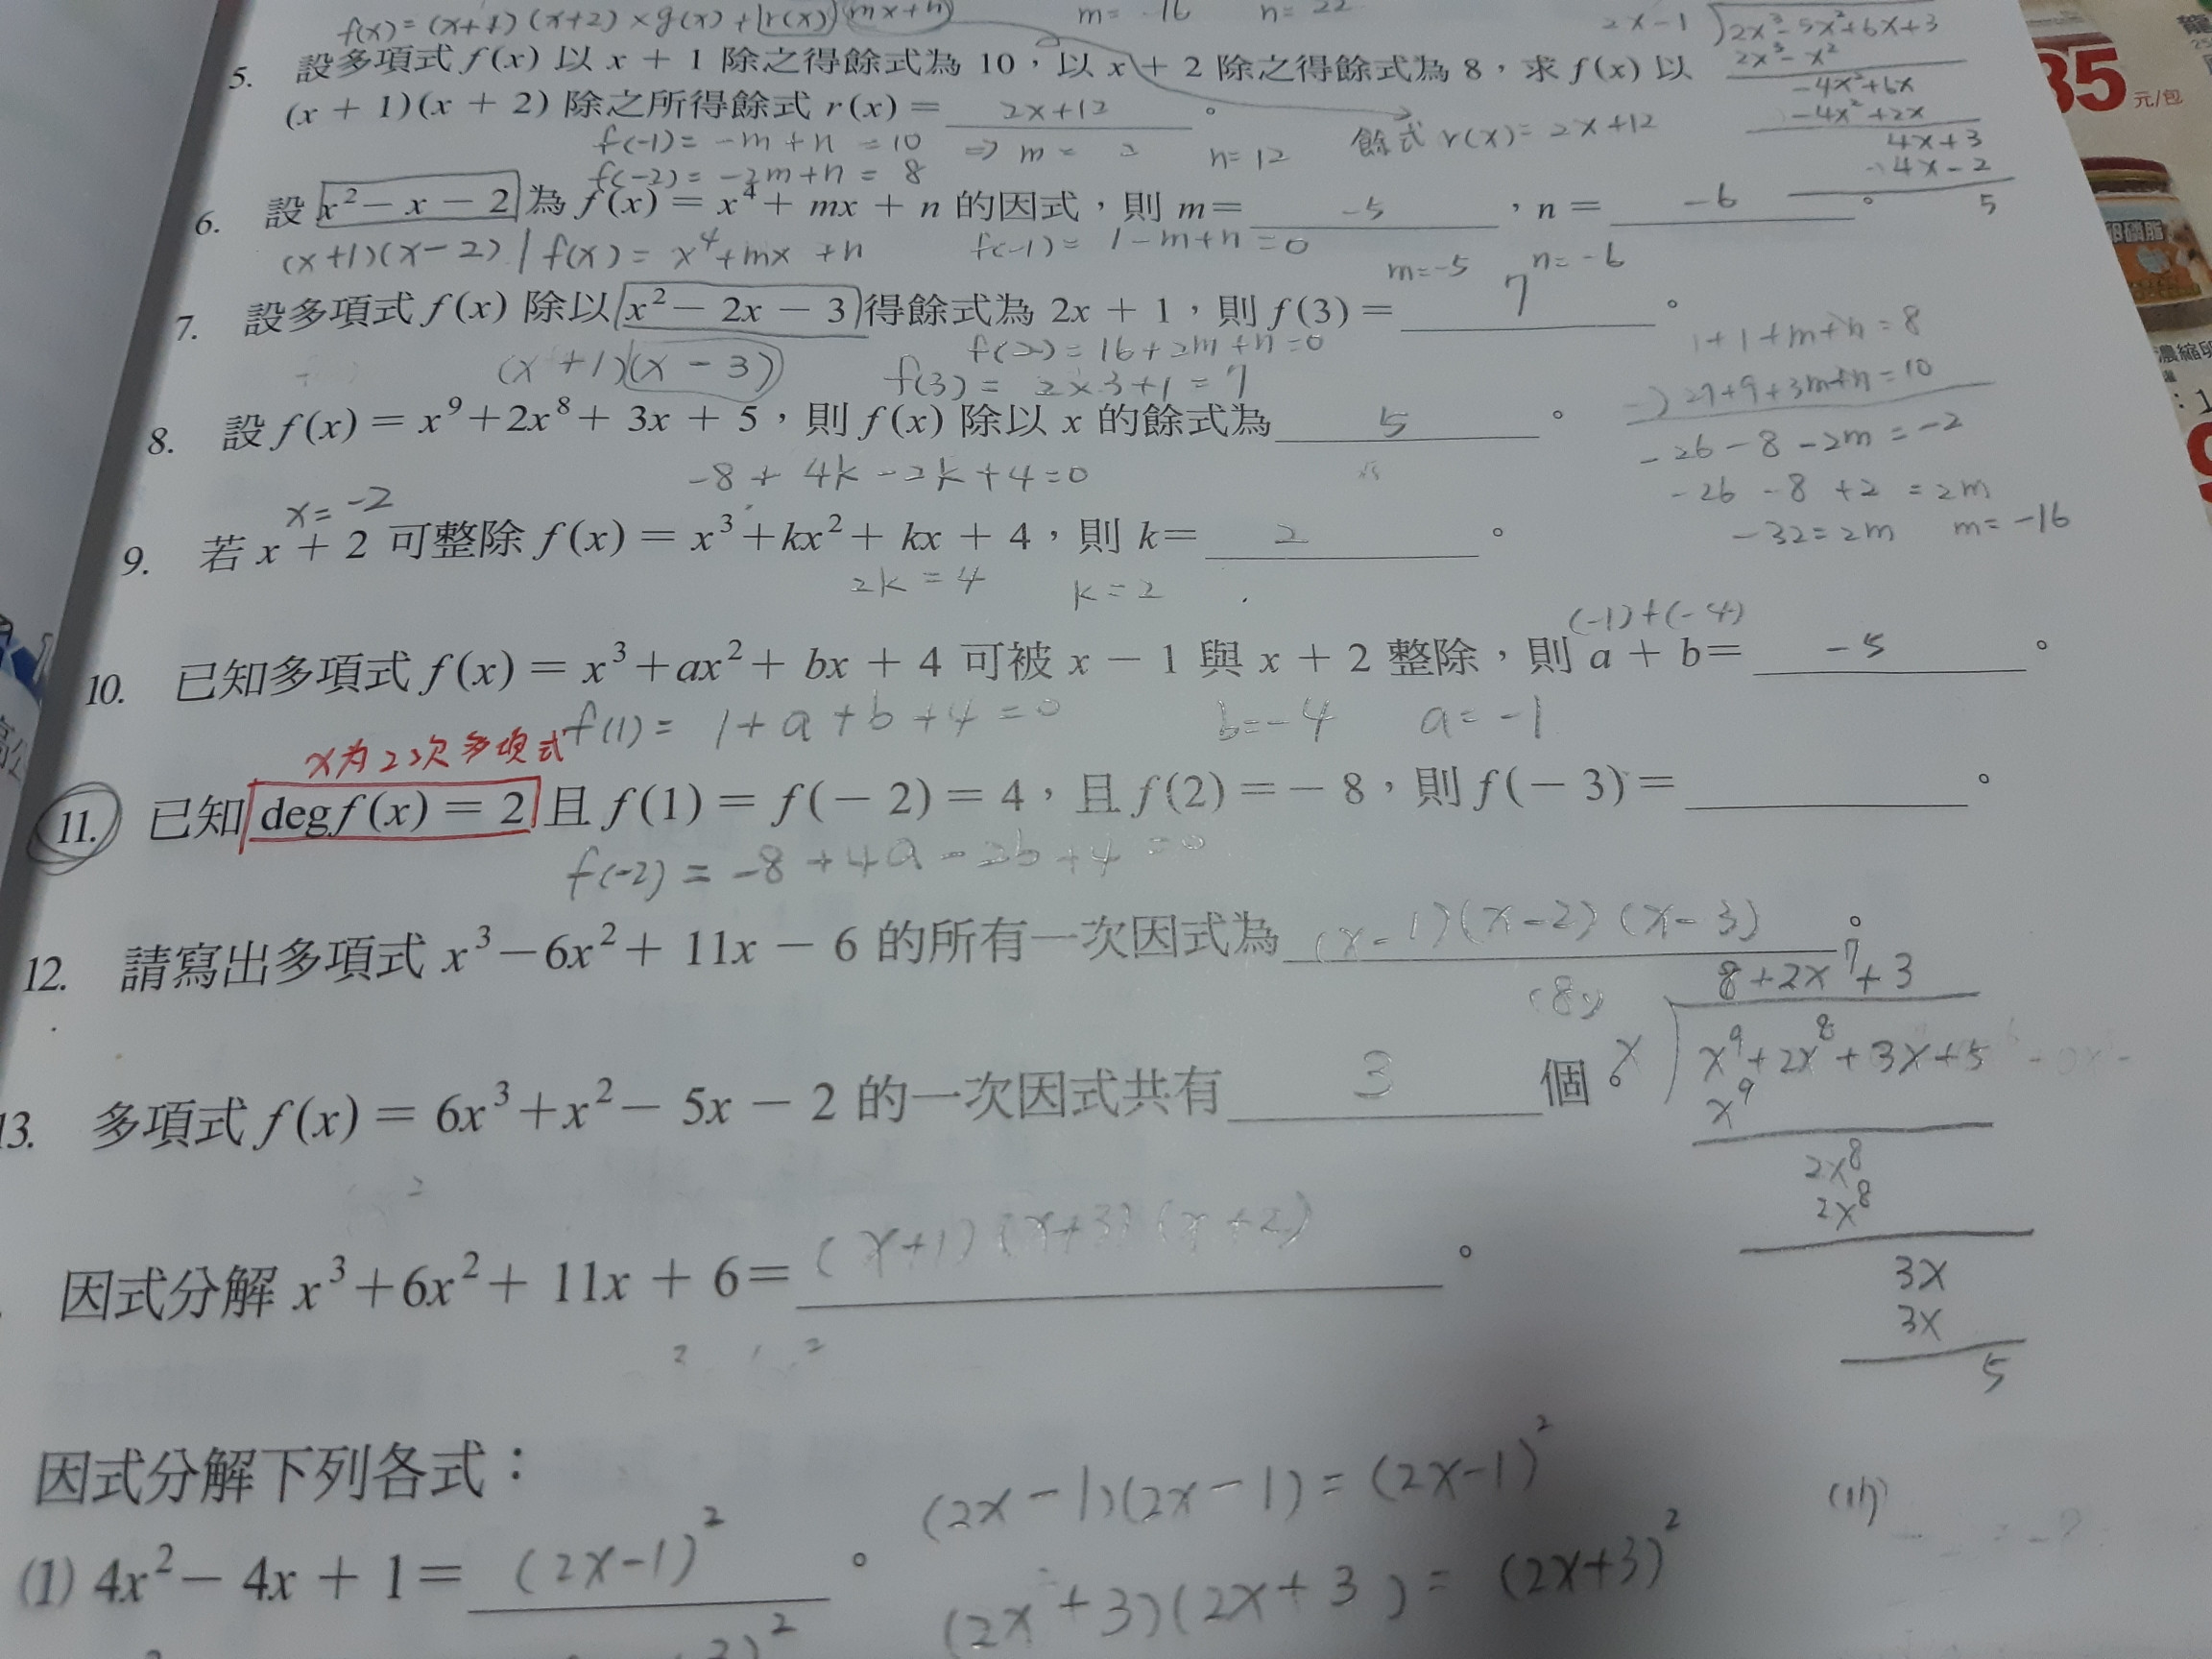 f(x)=(x+1)(x+2)×g(x)+r(x) mx+n m=-16 n=22
2x-1 2x³-5x²+6x+3
5. 設多項式 f(x) 以 x + 1 除之得餘式為 10，以 x + 2 除之得餘式為 8，求 f(x) 以
2x³-x²
-4x²+6x
(x + 1)(x + 2) 除之所得餘式 r(x) = 2x+12 。
-4x²+2x
4x+3
f(-1)=-m+n=10 ⇒ m= 2 n=12 餘式 r(x)=2x+12
4x-2
f(-2)=-2m+n=8
5
6. 設 x²- x - 2 為 f(x) = x⁴+ mx + n 的因式，則 m= -5 ，n = -6 。
(x+1)(x-2) | f(x)=x⁴+mx+n f(-1)=1-m+n=0
m=-5 n=-6
7. 設多項式 f(x) 除以 x²- 2x - 3 得餘式為 2x + 1，則 f(3) = 7 。
f(2)=16+2m+n=0
(x+1)(x-3) f(3)=2×3+1=7
1+1+m+n=8
27+9+3m+n=10
8. 設 f(x) = x⁹+2x⁸+ 3x + 5，則 f(x) 除以 x 的餘式為 5 。
-26-8-2m=-2
-8+4k-2k+4=0
-26-8+2=2m
x=-2
-32=2m m=-16
9. 若 x + 2 可整除 f(x) = x³+kx²+ kx + 4，則 k= 2 。
2k=4 k=2
(-1)+(-4)
10. 已知多項式 f(x) = x³+ax²+ bx + 4 可被 x - 1 與 x + 2 整除，則 a + b= -5 。
f(1)=1+a+b+4=0 b=-4 a=-1
x為2次多項式
11. 已知 deg f(x) = 2 且 f(1) = f(- 2) = 4，且 f(2) = - 8，則 f(- 3) = 。
f(-2)=-8+4a-2b+4=0
12. 請寫出多項式 x³-6x²+ 11x - 6 的所有一次因式為 (x-1)(x-2)(x-3) 。
8+2x⁷+3
(8)
x x⁹+2x⁸+3x+5
x⁹
13. 多項式 f(x) = 6x³+x²- 5x - 2 的一次因式共有 3 個。
2x⁸
2x⁸
因式分解 x³+6x²+ 11x + 6= (x+1)(x+3)(x+2) 。
3x
3x
5
因式分解下列各式：
(2x-1)(2x-1)=(2x-1)²
(11)
(1) 4x²- 4x + 1= (2x-1)² 。
(2x+3)(2x+3)=(2x+3)²
35 元/包